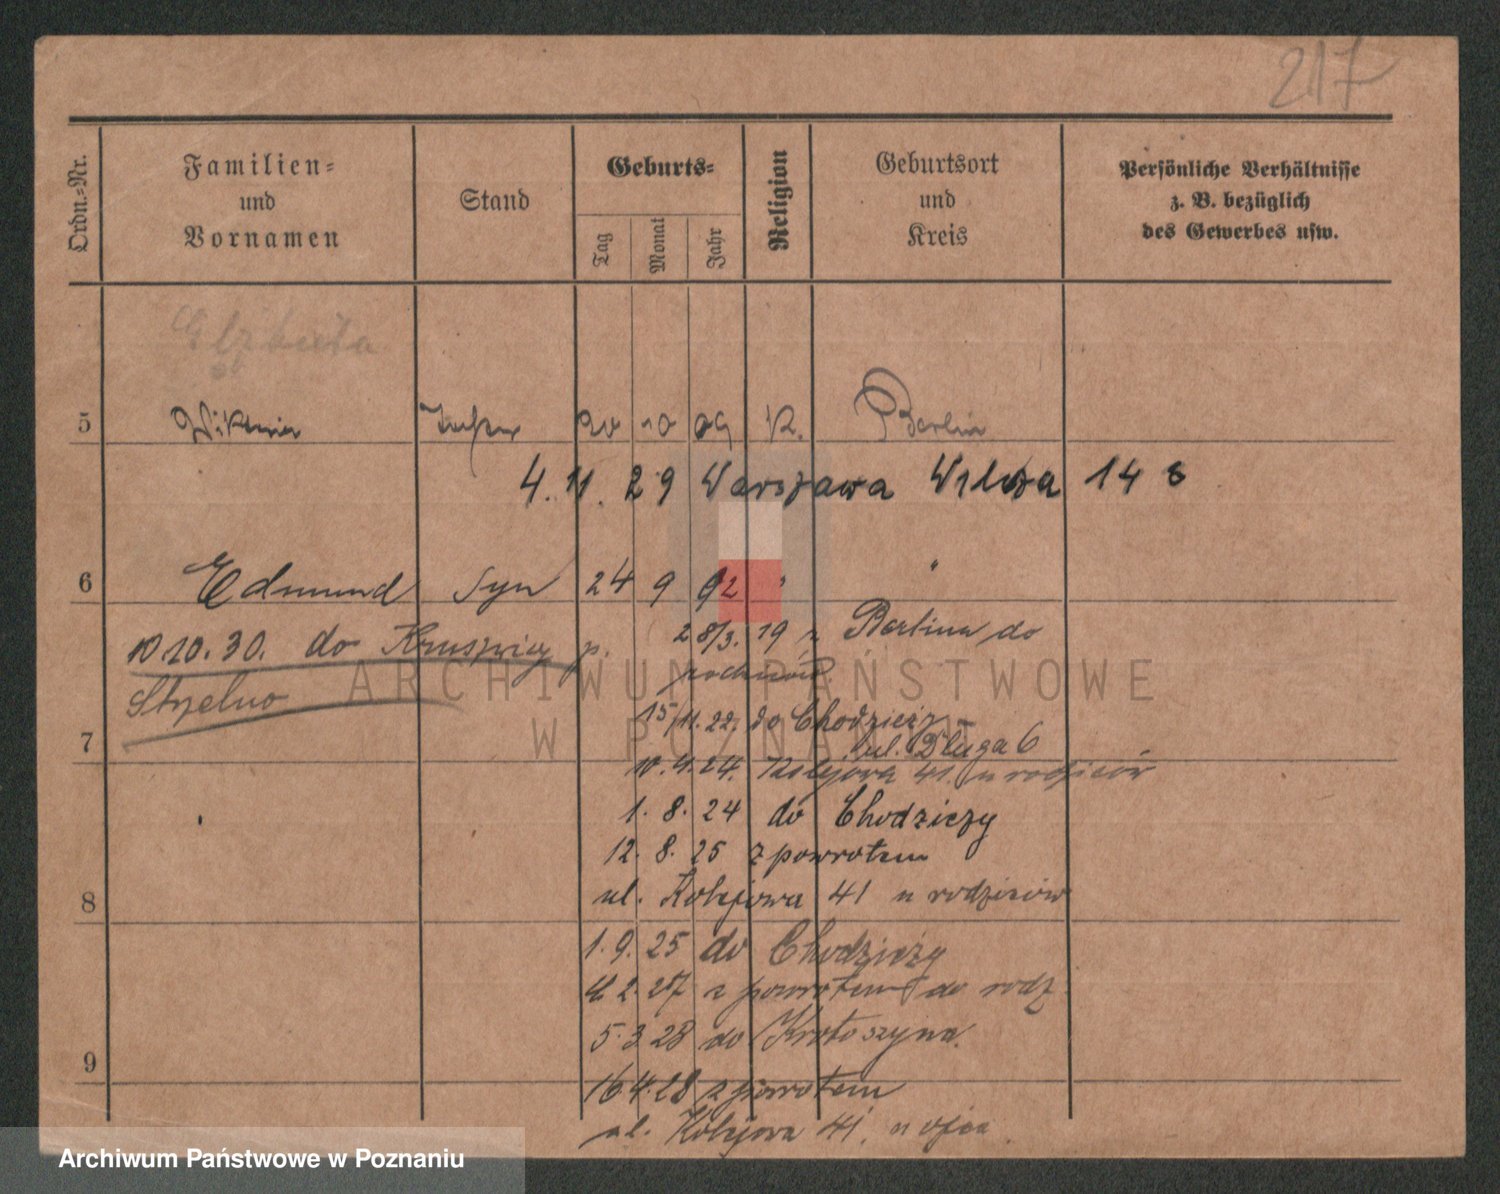 217
Ordn.=Nr.
Familien=
und
Vornamen
Stand
Geburts=
Tag
Monat
Jahr
Religion
Geburtsort
und
Kreis
Persönliche Verhältnisse
z. B. bezüglich
des Gewerbes usw.
Elżbieta
5 Wiktoria 20 10 09 K. Berlin
4. 11. 29 Warszawa Wilcza 14
6 Edmund Syn 24 9 02 " "
28/3. 19 z Berlina do
10 10. 30. do Kruszwicy p.
Strzelno
15/11. 22. do Chodzieży
ul. Długa 6
7
10. 4. 24. Kolejowa 41. u rodziców
1. 8. 24 do Chodzieży
12. 8. 25 z powrotem
8 ul. Kolejowa 41 u rodziców
1. 9. 25 do Chodzieży
2. 27 z powrotem do rodz
5. 3. 28 do Krotoszyna.
9
16 4. 28 z powrotem
ul. Kolejowa 41. u ojca
ARCHIWUM PAŃSTWOWE
W POZNANIU
Archiwum Państwowe w Poznaniu